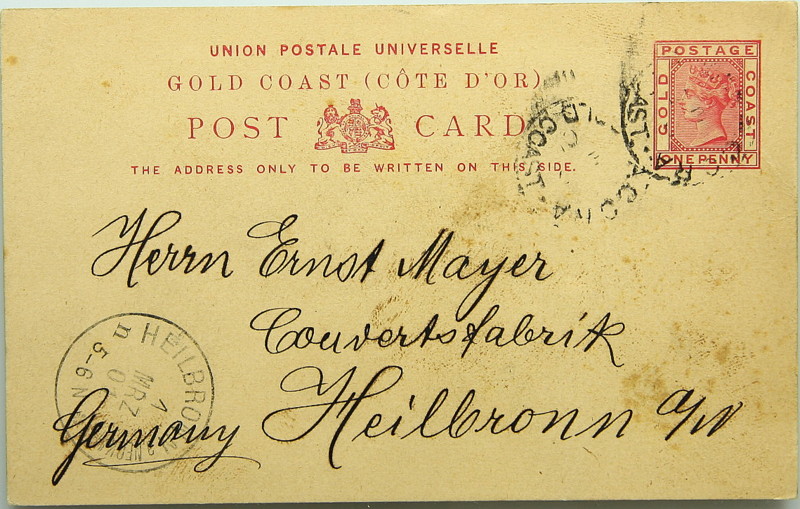 UNION POSTALE UNIVERSELLE
GOLD COAST (CÔTE D'OR)
POST CARD
THE ADDRESS ONLY TO BE WRITTEN ON THIS SIDE.
POSTAGE
GOLD
COAST
ONE PENNY
COAST
ACCRA
Herrn Ernst Mayer
Couvertsfabrik
Heilbronn a/N
Germany
HEILBRO
n
5-6N
1
MRZ